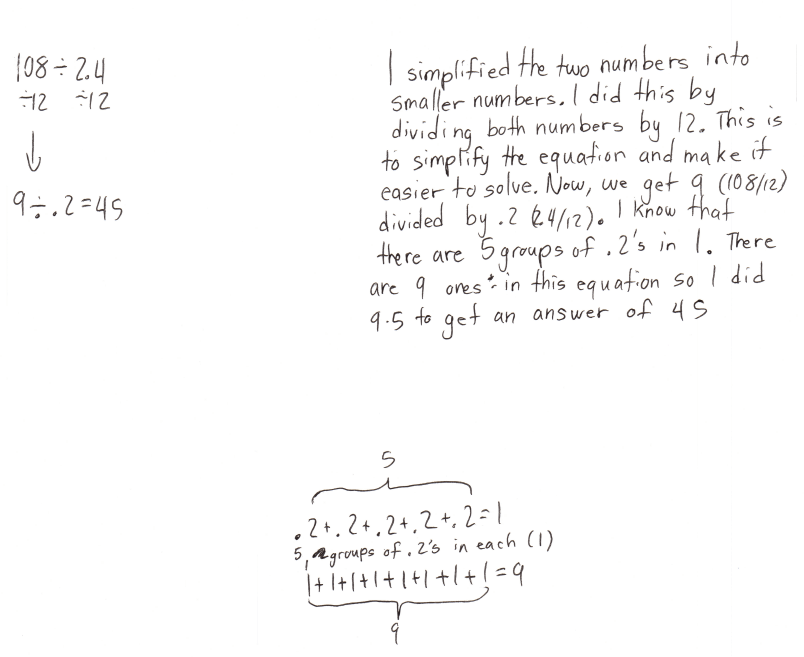 108 ÷ 2.4
÷12 ÷12
↓
9 ÷ .2 = 45
I simplified the two numbers into
smaller numbers. I did this by
dividing both numbers by 12. This is
to simplify the equation and make it
easier to solve. Now, we get 9 (108/12)
divided by .2 (2.4/12). I know that
there are 5 groups of .2's in 1. There
are 9 ones in this equation so I did
9·5 to get an answer of 45
5
.2+.2+.2+.2+.2=1
5, groups of .2's in each (1)
1+1+1+1+1+1+1+1=9
9